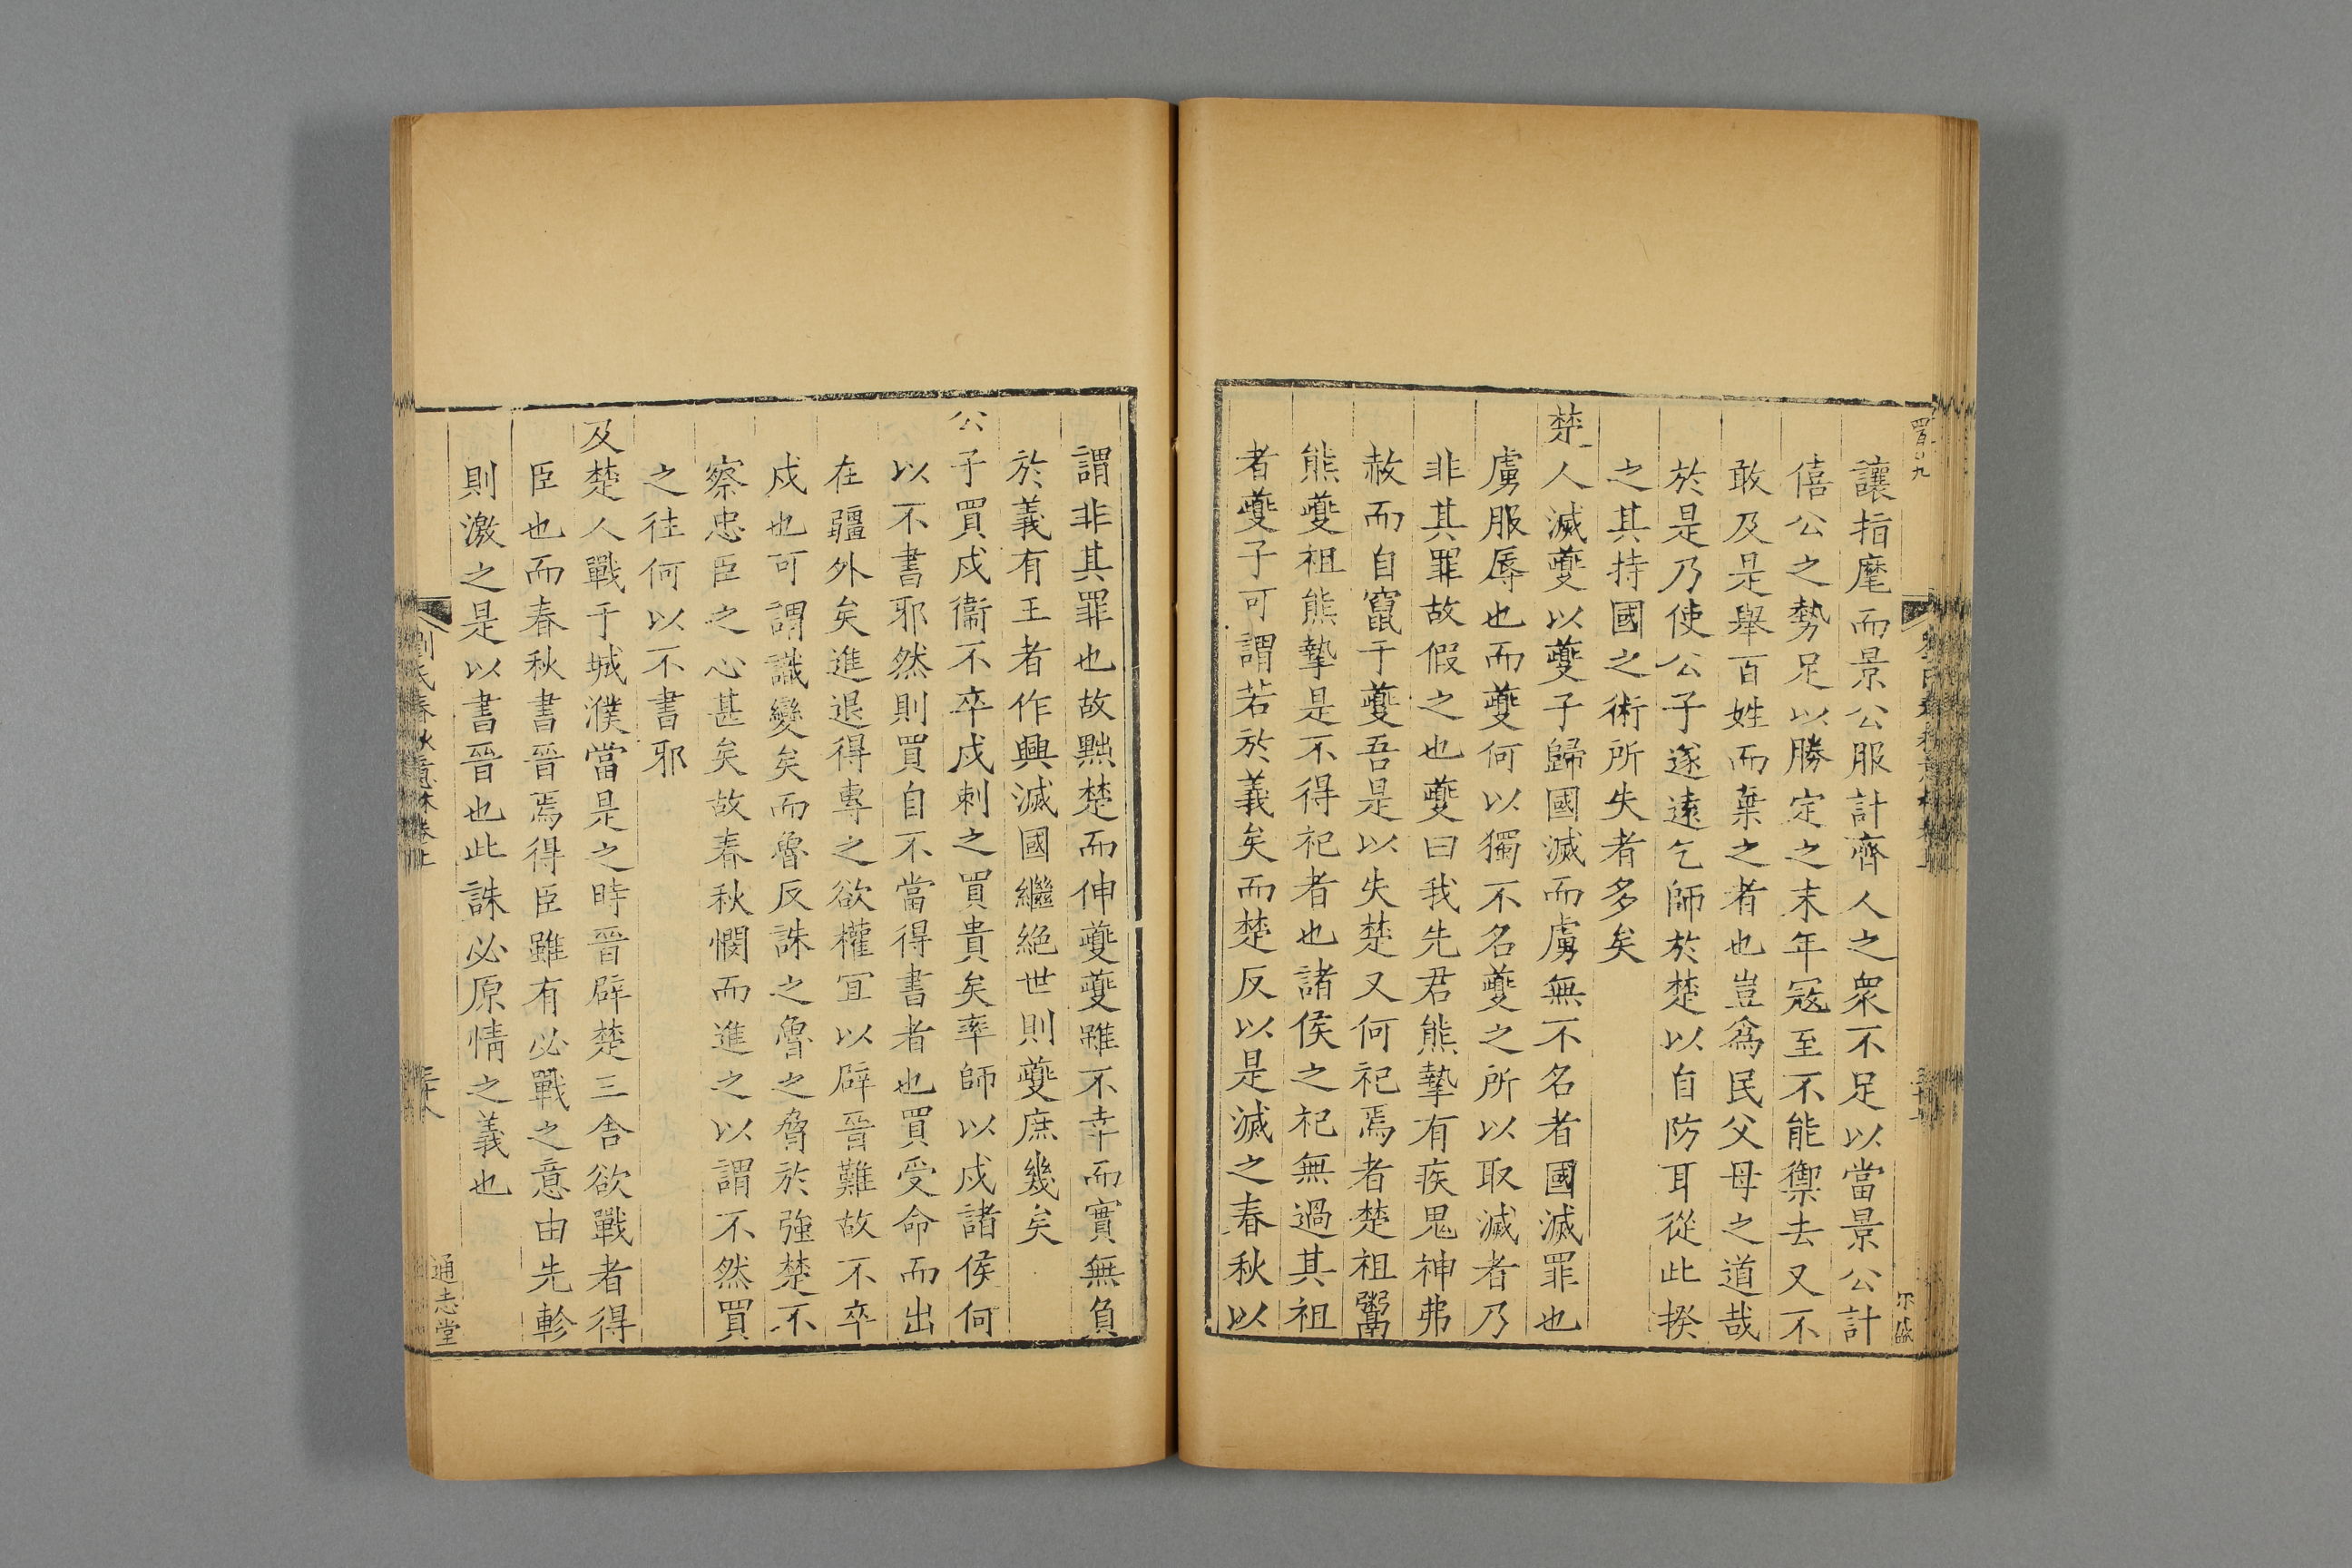 讓指麾而景公服計齊人之衆不足以當景公計
僖公之勢足以勝定之末年寇至不能禦去又不
敢及是舉百姓而棄之者也豈為民父母之道哉
於是乃使公子遂遠乞師於楚以自防耳從此揆
之其持國之術所失者多矣
楚人滅夔以夔子歸國滅而虜無不名者國滅罪也
虜服辱也而夔何以獨不名夔之所以取滅者乃
非其罪故假之也夔曰我先君熊摯有疾鬼神弗
赦而自竄于夔吾是以失楚又何祀焉者楚祖鬻
熊夔祖熊摯是不得祀者也諸侯之祀無過其祖
者夔子可謂若於義矣而楚反以是滅之春秋以
謂非其罪也故黜楚而伸夔夔雖不幸而實無負
於義有王者作興滅國繼絶世則夔庶幾矣
公子買戍衞不卒戍刺之買貴矣率師以戍諸侯何
以不書邪然則買自不當得書者也買受命而出
在疆外矣進退得專之欲權宜以辟晉難故不卒
戍也可謂識變矣而魯反誅之魯之脅於強楚不
察忠臣之心甚矣故春秋憫而進之以謂不然買
之往何以不書邪
及楚人戰于城濮當是之時晉辟楚三舍欲戰者得
臣也而春秋書晉焉得臣雖有必戰之意由先軫
則激之是以書晉也此誅必原情之義也
劉氏春秋意林卷上
通志堂